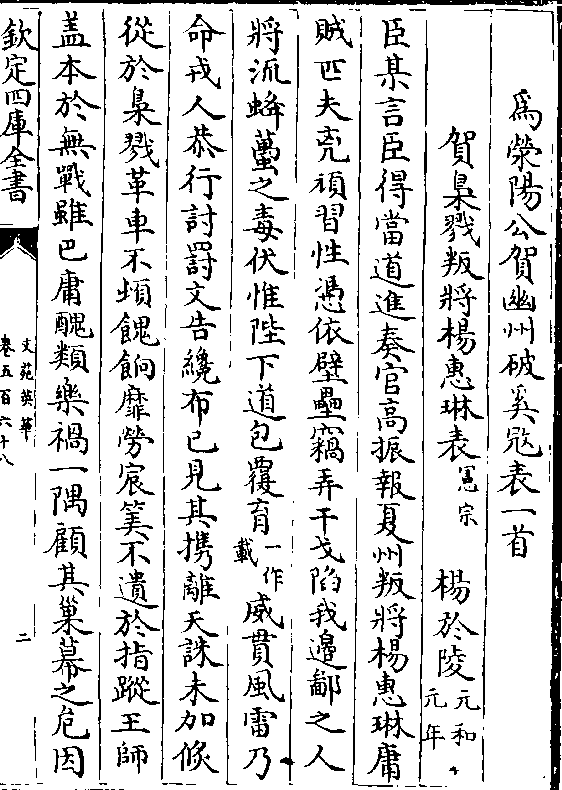 為滎陽公賀幽州破奚寇表一首
賀梟戮叛將楊惠琳表憲宗 楊於陵元和元年
臣某言臣得當道進奏官高振報夏州叛將楊惠琳庸
賊匹夫兇頑習性憑依壁壘竊弄干戈陷我邊鄙之人
將流蜂蠆之毒伏惟陛下道包覆育一作載威貫風雷乃
命戎人恭行討罰文告纔布已見其攜離天誅未加倐
從於梟戮革車不煩餽餉靡勞宸筭不遺於指蹤王師
盖本於無戰雖巴庸醜類樂禍一隅顧其巢幕之危因
欽定四庫全書
文苑英華
卷五百六十八
二